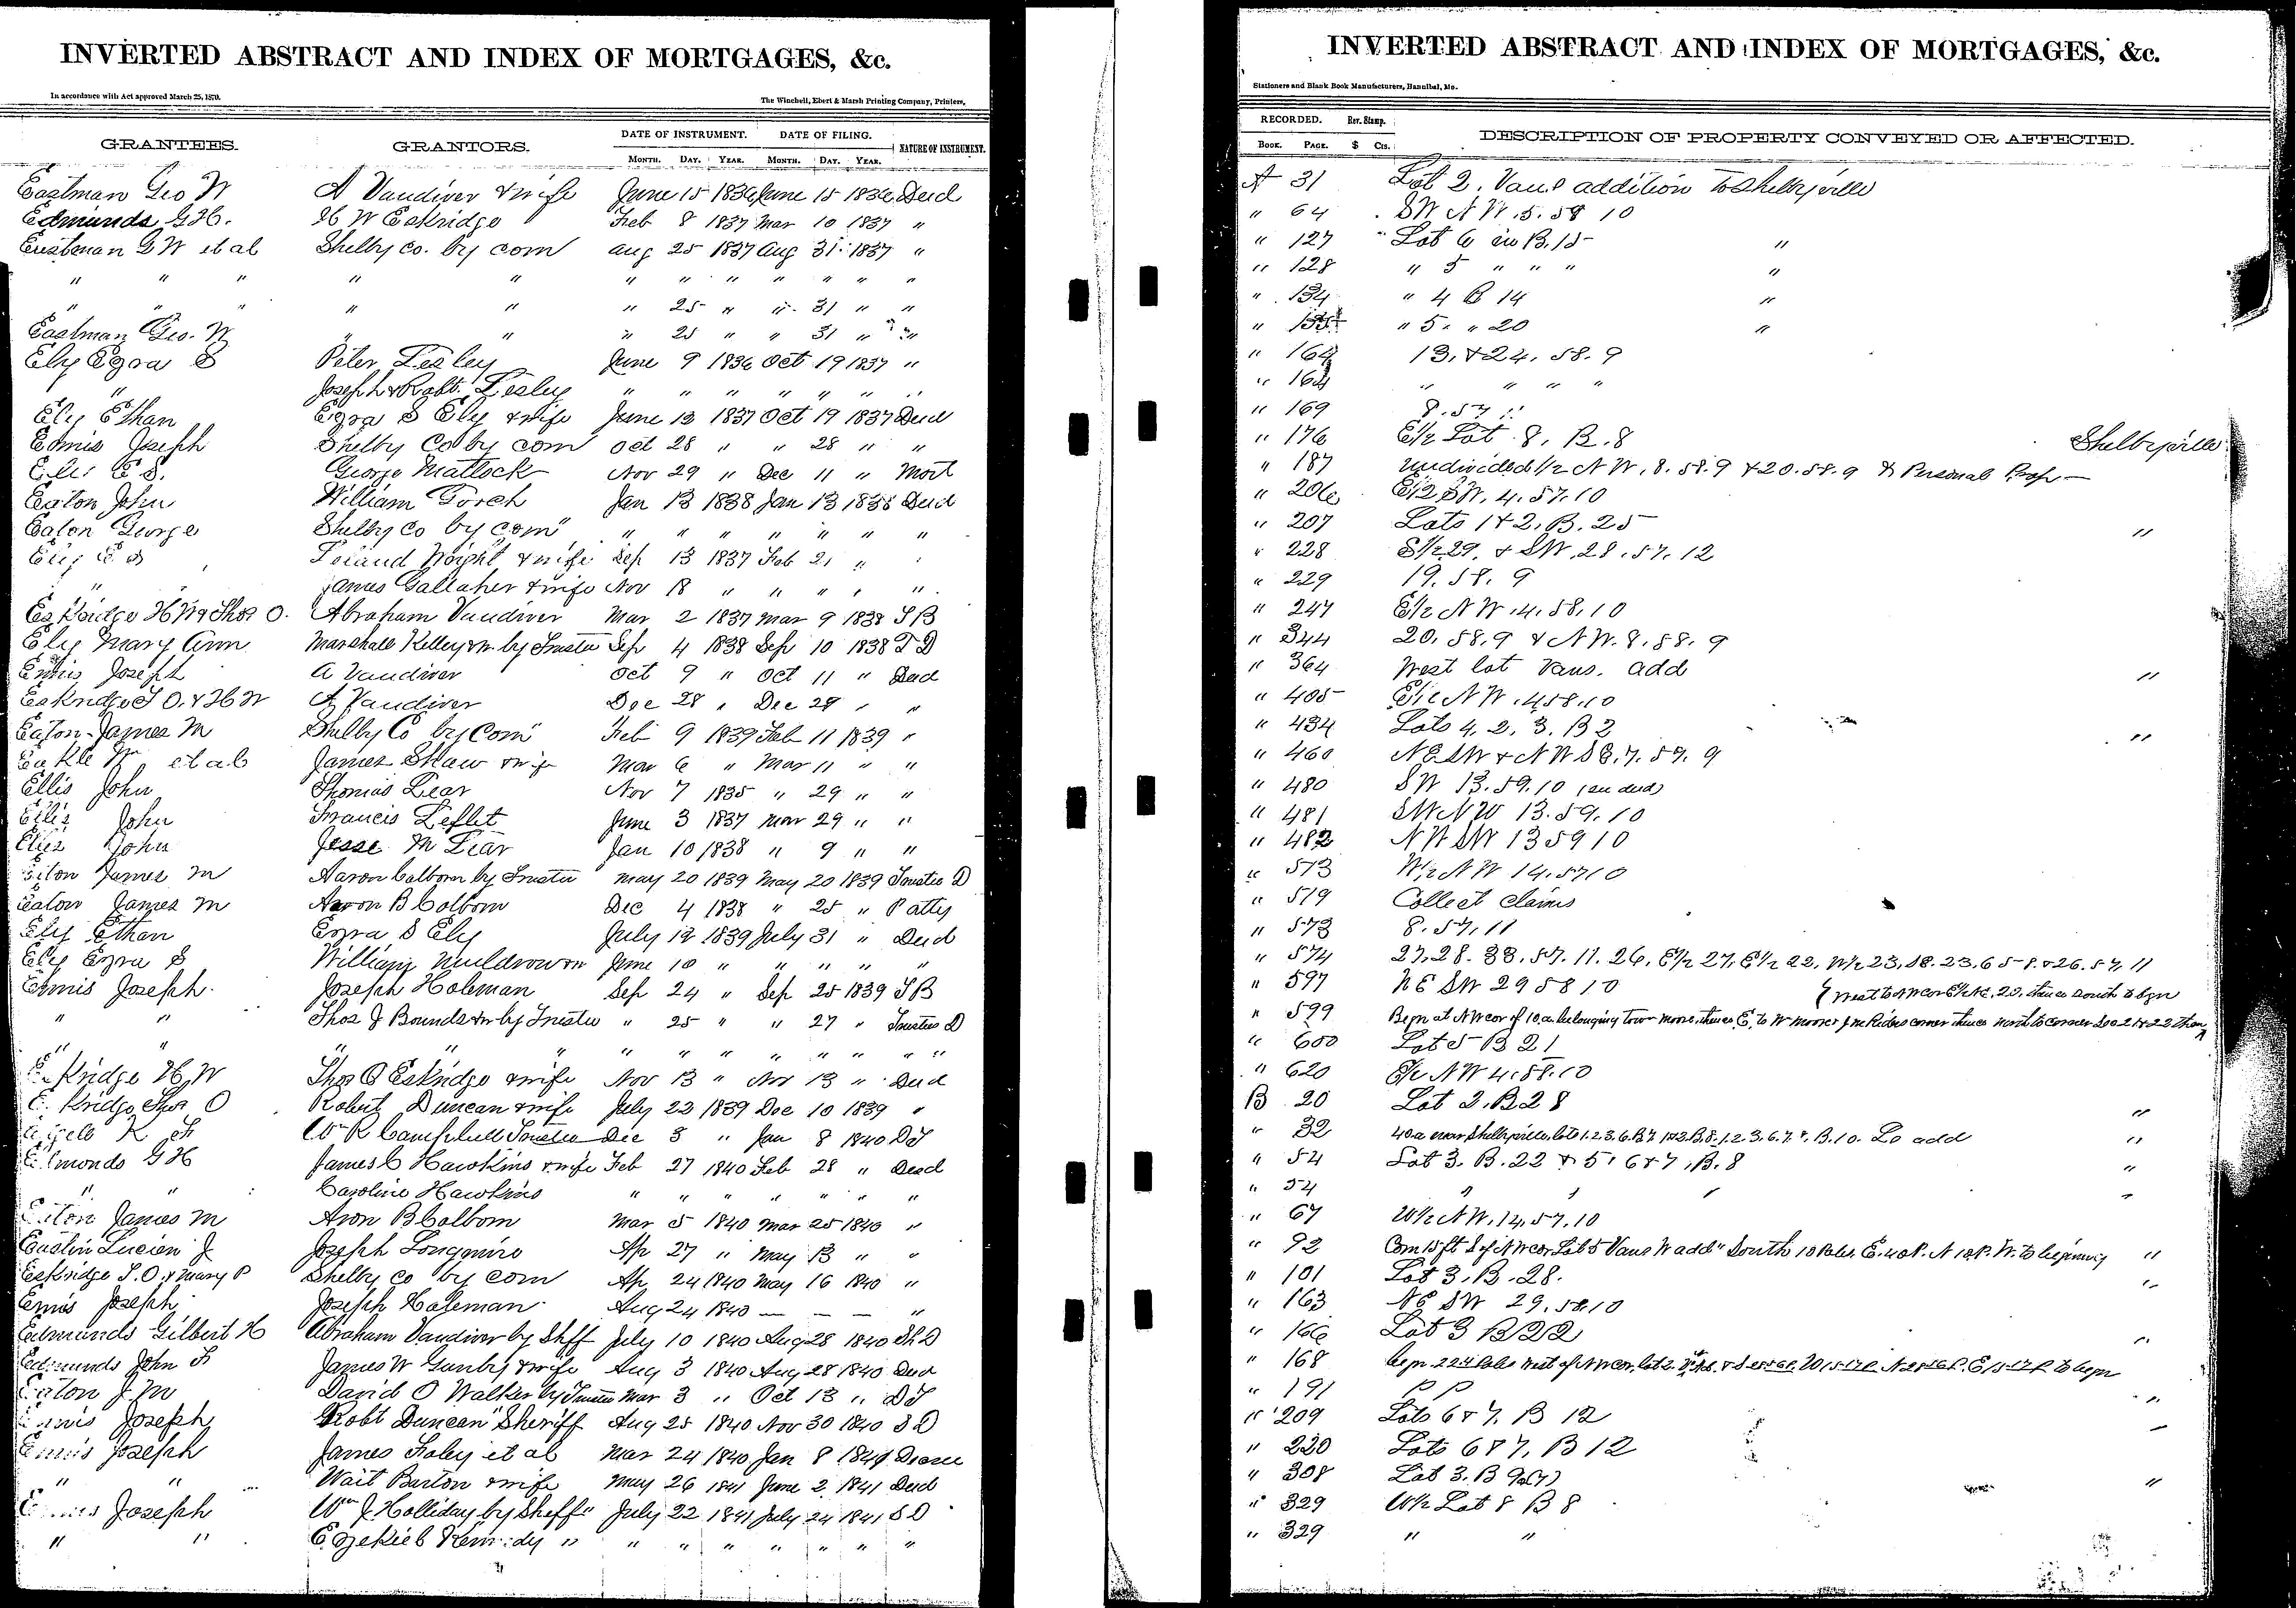 INVERTED ABSTRACT AND INDEX OF MORTGAGES, &c.
In accordance with Act approved March 25, 1870.
The Winchell, Ebert & Marsh Printing Company, Printers,
GRANTEES. GRANTORS. DATE OF INSTRUMENT. DATE OF FILING. NATURE OF INSTRUMENT.
MONTH. DAY. YEAR. MONTH. DAY. YEAR.
Eastman Geo W A Vandiver & wife June 15 1836 June 15 1836 Deed
Edmunds G H. H W Eskridge Feb 8 1837 Mar 10 1837 "
Eastman G W et al Shelby Co. by com Aug 25 1837 Aug 31 1837 "
" " " " " " " " " " " "
" " " " " 25 " " 31 " "
Eastman Geo. W " " " 25 " " 31 " "
Ely Ezra S Peter Lesley June 9 1836 Oct 19 1837 "
" Joseph & Robt. Lesley " " " " " "
Ely Ethan Ezra S Ely & wife June 12 1837 Oct 19 1837 Deed
Ennis Joseph Shelby Co by com Oct 28 " " 28 " "
Ely E S. George Matlock Nov 29 " Dec 11 " Mort
Eaton John William Gorch Jan 13 1838 Jan 13 1838 Deed
Eaton George Shelby Co by com " " " " " " "
Ely E S Wright & wife Sep 13 1837 Feb 21 "
" James Gallaher & wife Nov 18 " " " " "
Eskridge H W & Thos O. Abraham Vandiver Mar 2 1837 Mar 9 1838 T B
Ely Mary Ann Marshall Kelley by Trustee Sep 4 1838 Sep 10 1838 T D
Ennis Joseph A Vandiver Oct 9 " Oct 11 " Deed
Eskridge T O. & H W A Vandiver Dec 28 " Dec 29 " "
Eaton James M Shelby Co by Com Feb 9 1839 Feb 11 1839 "
et al James Shaw & wife Mar 6 " Mar 11 " "
Ellis John Thomas Lear Nov 7 1835 " 29 " "
Ellis John Francis Leflet June 3 1837 Mar 29 " "
Ellis John Jesse M Lear Jan 10 1838 " 9 " "
Eaton James M Aaron Colborn by Trustee May 20 1839 May 20 1839 Trustee D
Eaton James M Aaron B Colborn Dec 4 1838 " 25 " P atty
Ely Ethan Ezra S Ely July 12 1839 July 31 " Deed
Ely Ezra S William Muldrow June 10 " " " " "
Ennis Joseph. Joseph Holeman Sep 24 " Sep 25 1839 T B
" " Thos J Bounds by Trustee " 25 " " 27 " Trustees D
" " " " " " " " " " "
Eskridge H W Thos O Eskridge & wife Nov 13 " Nov 13 " Deed
Eskridge Thos O Robert Duncan & wife July 22 1839 Dec 10 1839 "
W R Campbell Trustee Dec 3 " Jan 8 1840 D T
Edmonds G H James C Hawkins & wife Feb 27 1840 Feb 28 " Deed
" " Caroline Hawkins " " " " " " "
Eaton James M Aron B Colborn Mar 5 1840 Mar 25 1840 "
Eastin Lucien J Joseph Longmire Ap 27 " May 13 " "
Eskridge T. O. & Mary P Shelby Co by com Ap 24 1840 May 16 1840 "
Ennis Joseph Joseph Holeman Aug 24 1840 — — — "
Edmunds Gilbert H Abraham Vandiver by Shff July 10 1840 Aug 28 1840 Sh D
Edmunds John F James W Gunby & wife Aug 3 1840 Aug 28 1840 Deed
Eaton J M David O Walker by Trustee Mar 3 " Oct 13 " D T
Ennis Joseph Robt Duncan Sheriff Aug 25 1840 Nov 30 1840 S D
Ennis Joseph James Foley et al Mar 24 1840 Jan 8 1841
" " Wait Barton & wife May 26 1841 June 2 1841 Deed
Ennis Joseph Wm J Holliday by Sheff July 22 1841 July 24 1841 S D
" " Ezekiel Kennedy " " " " " " " "
INVERTED ABSTRACT AND INDEX OF MORTGAGES, &c.
Stationers and Blank Book Manufacturers, Hannibal, Mo.
RECORDED. Rev. Stamp. DESCRIPTION OF PROPERTY CONVEYED OR AFFECTED.
BOOK. PAGE. $ Cts.
A 31 Lot 2. Vans addition to Shelbyville
" 64 SW N W. 5. 58 10
" 127 Lot 6 in B. 15 "
" 128 " 5 " " " "
" 134 " 4 B 14 "
" 135 " 5 " 20 "
" 164 13, & 24. 58. 9
" 164 " " " "
" 169 8. 57 11
" 176 E½ Lot 8. B. 8 Shelbyville
" 187 Undivided ½ N W, 8. 58. 9 & 20. 58. 9 & Personal Prop
" 206 E½ SW. 4. 57. 10
" 207 Lots 1 & 2, B. 25 "
" 228 E½ 29. & SW. 28. 57. 12
" 229 19. 58. 9
" 247 E½ N W. 4. 58. 10
" 344 20. 58. 9 & N W. 8. 58. 9
" 364 West lot Vans. add "
" 405 E½ N W. 4 58. 10
" 434 Lots 4, 2, 3. B 2 "
" 460 NE SW & NW SE. 7. 57. 9
" 480 SW 13. 59. 10
" 481 SW NW 13. 59. 10
" 482 NW SW 13 59 10
" 513 W½ NW 14. 57 10
" 519 Collect claims
" 573 8. 57, 11
" 574 27. 28. 33. 57. 11. 26, E½ 27, E½ 22, W½ 23, 58. 23. 6 5 8. & 26. 57. 11
" 597 NE SW 29 58 10
" 599 Begn at NW cor of 10 a. belonging to W Moore, thence E. to W Moore & McKides corner thence north to corner
" 600 Lot 5 B 21
" 620 E½ NW 4. 58. 10
B 20 Lot 2. B 28 "
" 32 40 a near Shelbyville, lots 1. 2. 3. 6. B 7 1 & 3. B. 8. 1. 2. 3. 6. 7. B. 10. add "
" 54 Lot 3. B. 22 & 5, 6 & 7, B. 8 "
" 54 " " " "
" 67 W½ NW. 14. 57. 10
" 92 Com 15 ft S of NW cor Lot 5 Vans W add South 10 Poles. E. 40 P. N 10 P. W. to beginning "
" 101 Lot 3. B. 28. "
" 163 NE SW 29. 58. 10
" 166 Lot 3 B 22 "
" 168
" 191 P P "
" 209 Lots 6 & 7. B 12 "
" 230 Lots 6 & 7, B 12
" 308 Lot 3. B "
" 329 W½ Lot 8 B 8
" 329 " "